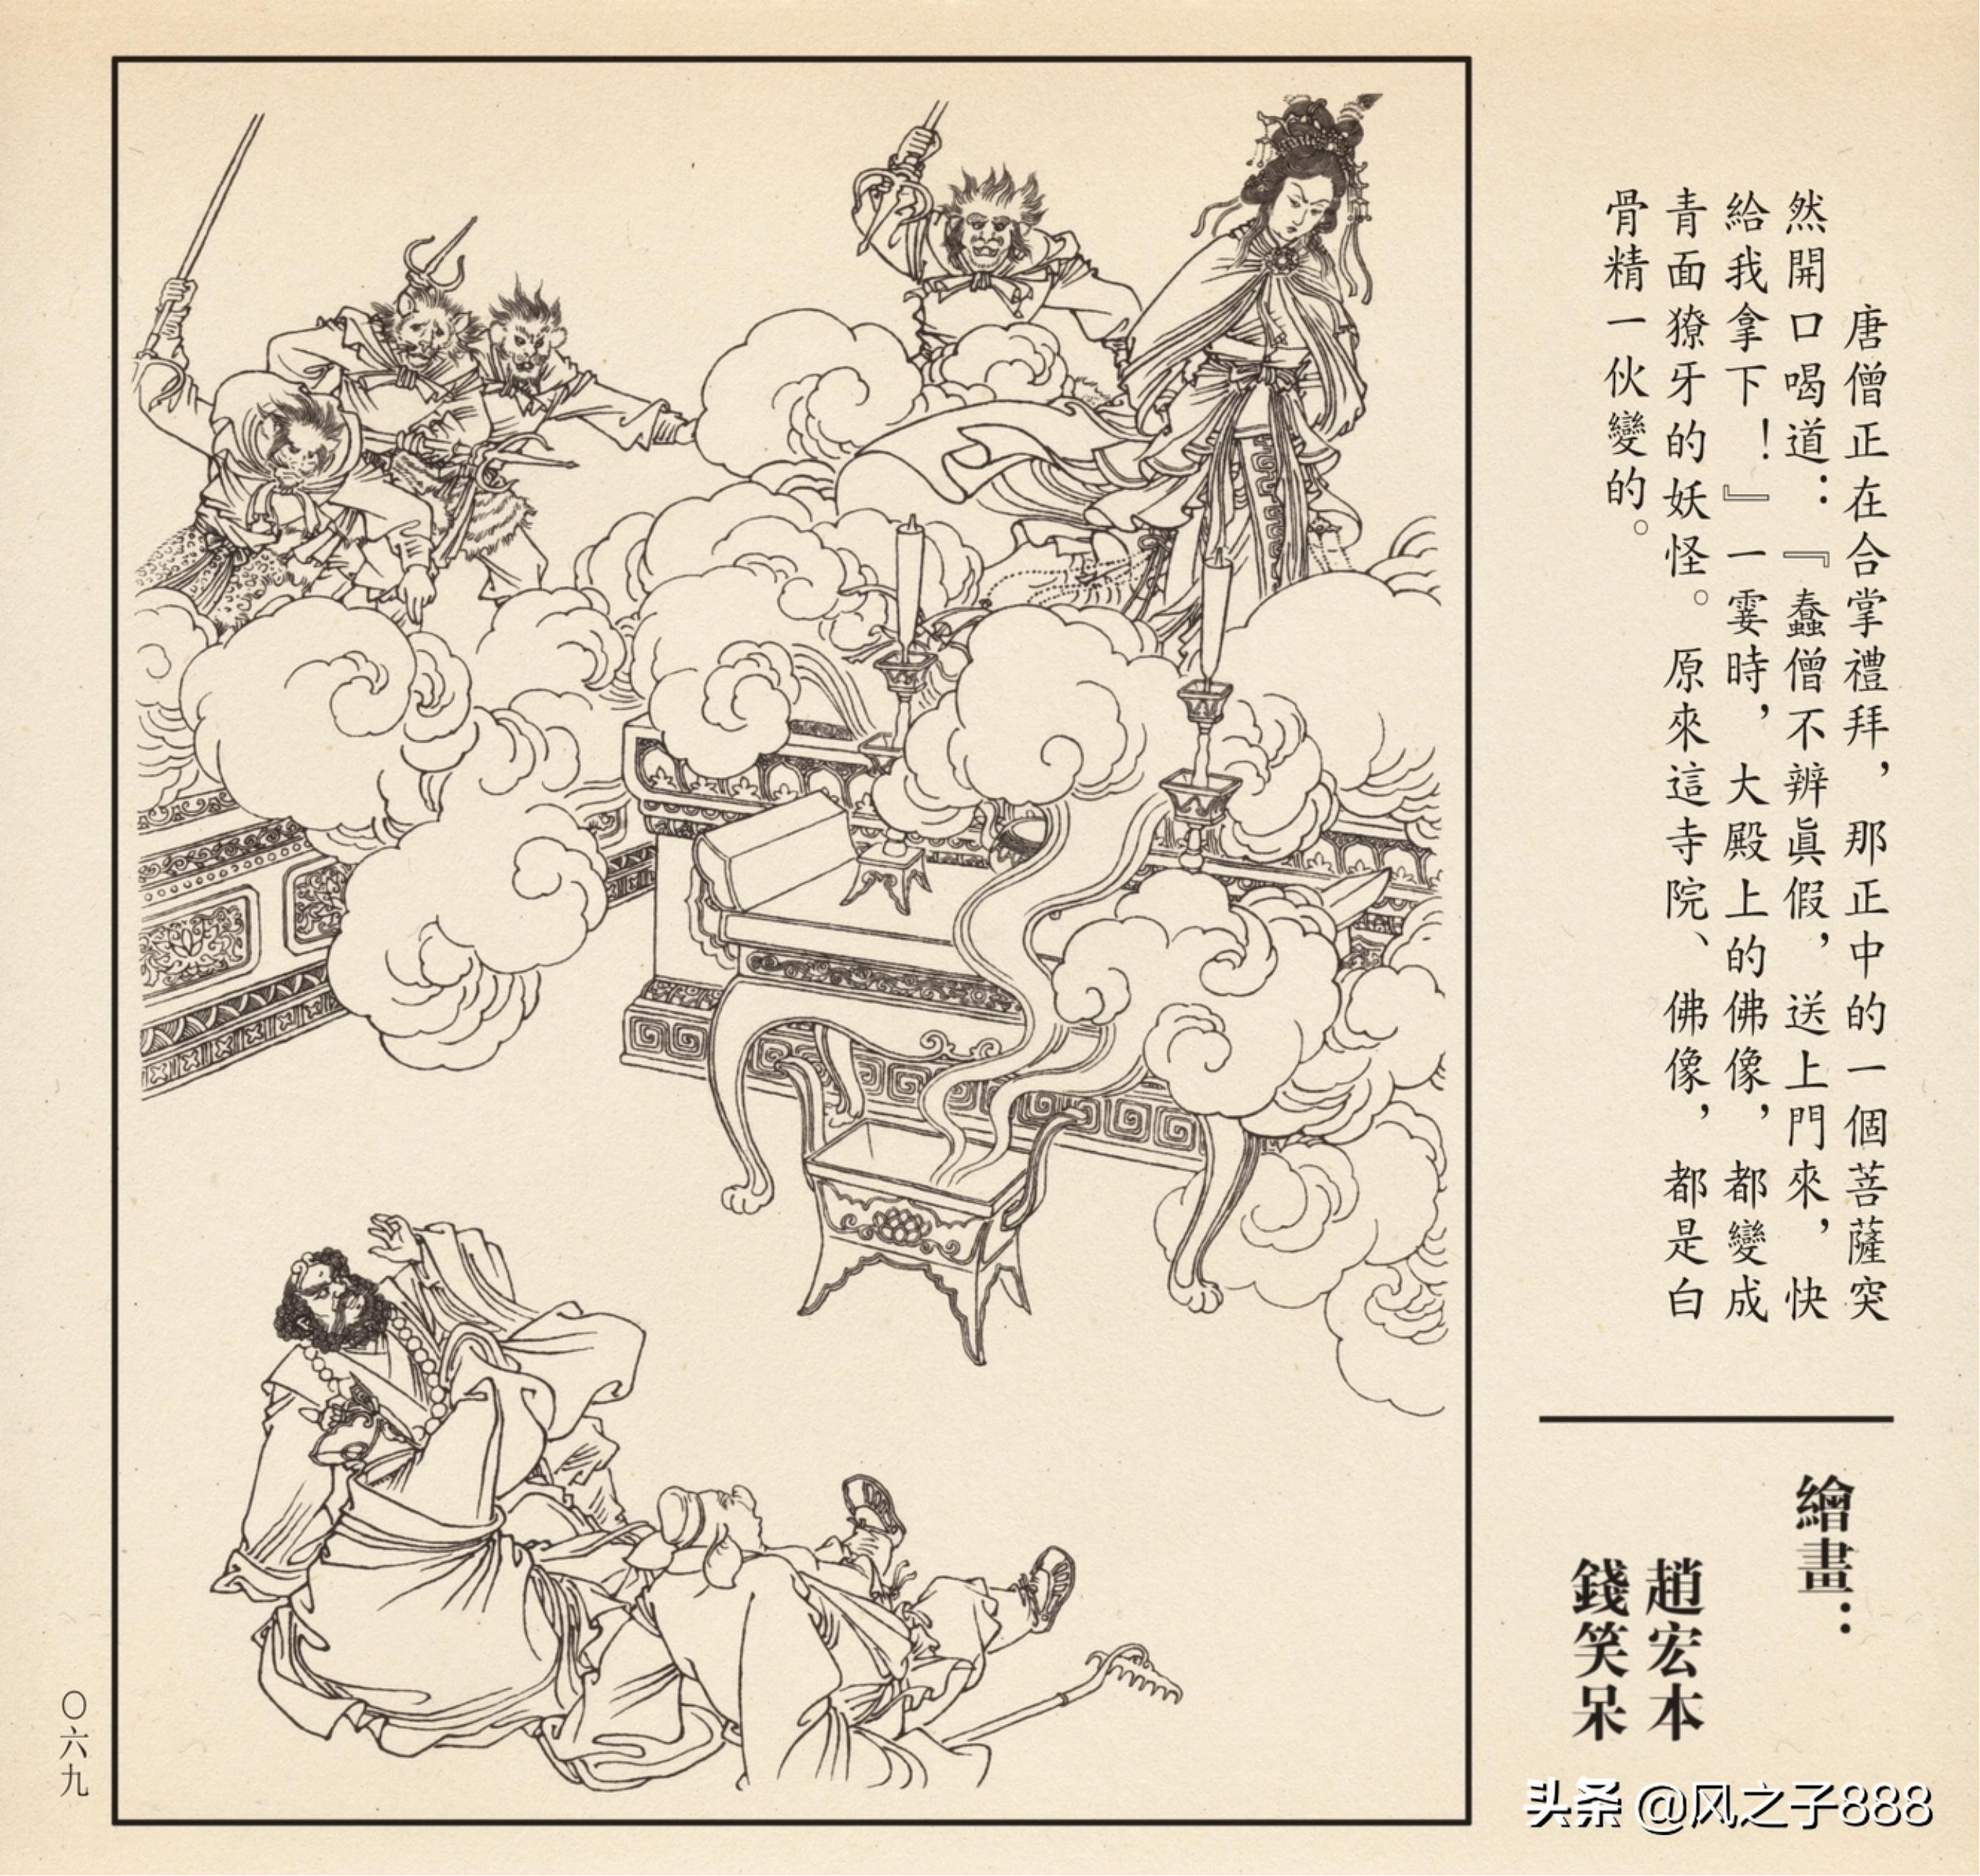 唐僧正在合掌禮拜，那正中的一個菩薩突
然開口喝道：『蠢僧不辨眞假，送上門來，快
給我拿下！』一霎時，大殿上的佛像，都變成
青面獠牙的妖怪。原來這寺院、佛像，都是白
骨精一伙變的。
繪畫：
趙宏本
錢笑呆
〇六九
头条 @风之子888